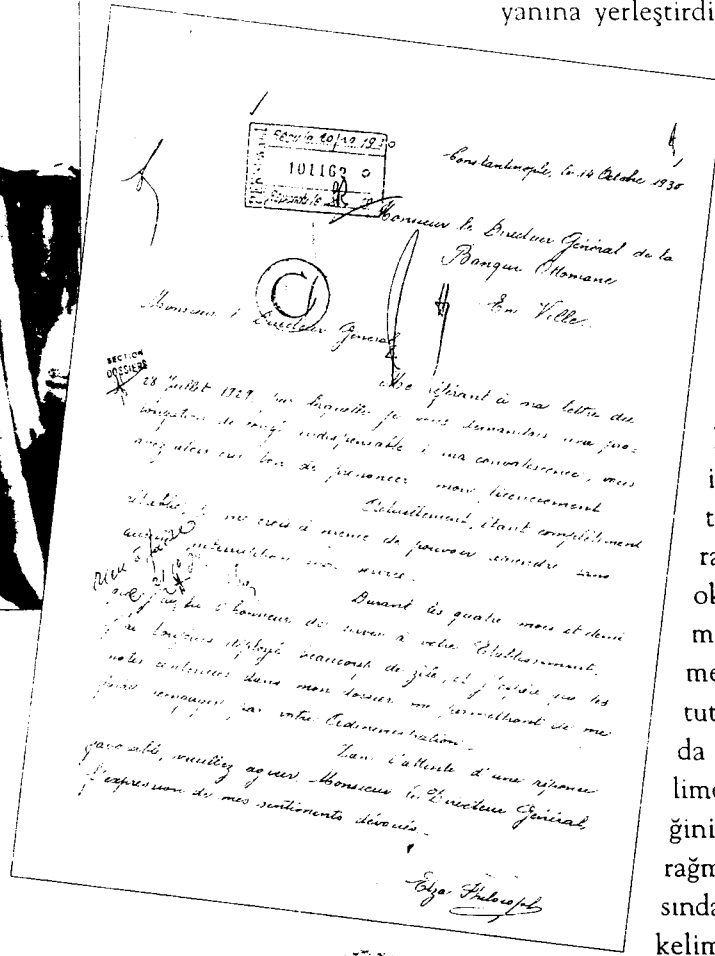 yanına yerleştirdi
Reçu le 20/10 1930
101163
Constantinople, le 14 Octobre 1930
Monsieur le Directeur Général de la
Banque Ottomane
En Ville.
Monsieur le Directeur Général,
SECTION
DOSSIERS
Me référant à ma lettre du
28 Juillet 1929, par laquelle je vous demandais une pro-
longation de congé indispensable à ma convalescence, vous
avez alors cru bon de prononcer mon licenciement
Actuellement, étant complètement
rétablie, je me crois à même de pouvoir reprendre sans
aucune interruption mon service.
rien à faire
Durant les quatre mois et demi
que j'ai eu l'honneur de servir à votre Etablissement,
j'ai toujours déployé beaucoup de zèle, et j'espère que les
notes contenues dans mon dossier me permettront de me
faire par votre Administration.
Dans l'attente d'une réponse
favorable, veuillez agréer, Monsieur le Directeur Général,
l'expression de mes sentiments dévoués.
Elza Philosoph
i
t
ra
ok
m
me
tut
da
lime
ğini
rağm
sında
kelim